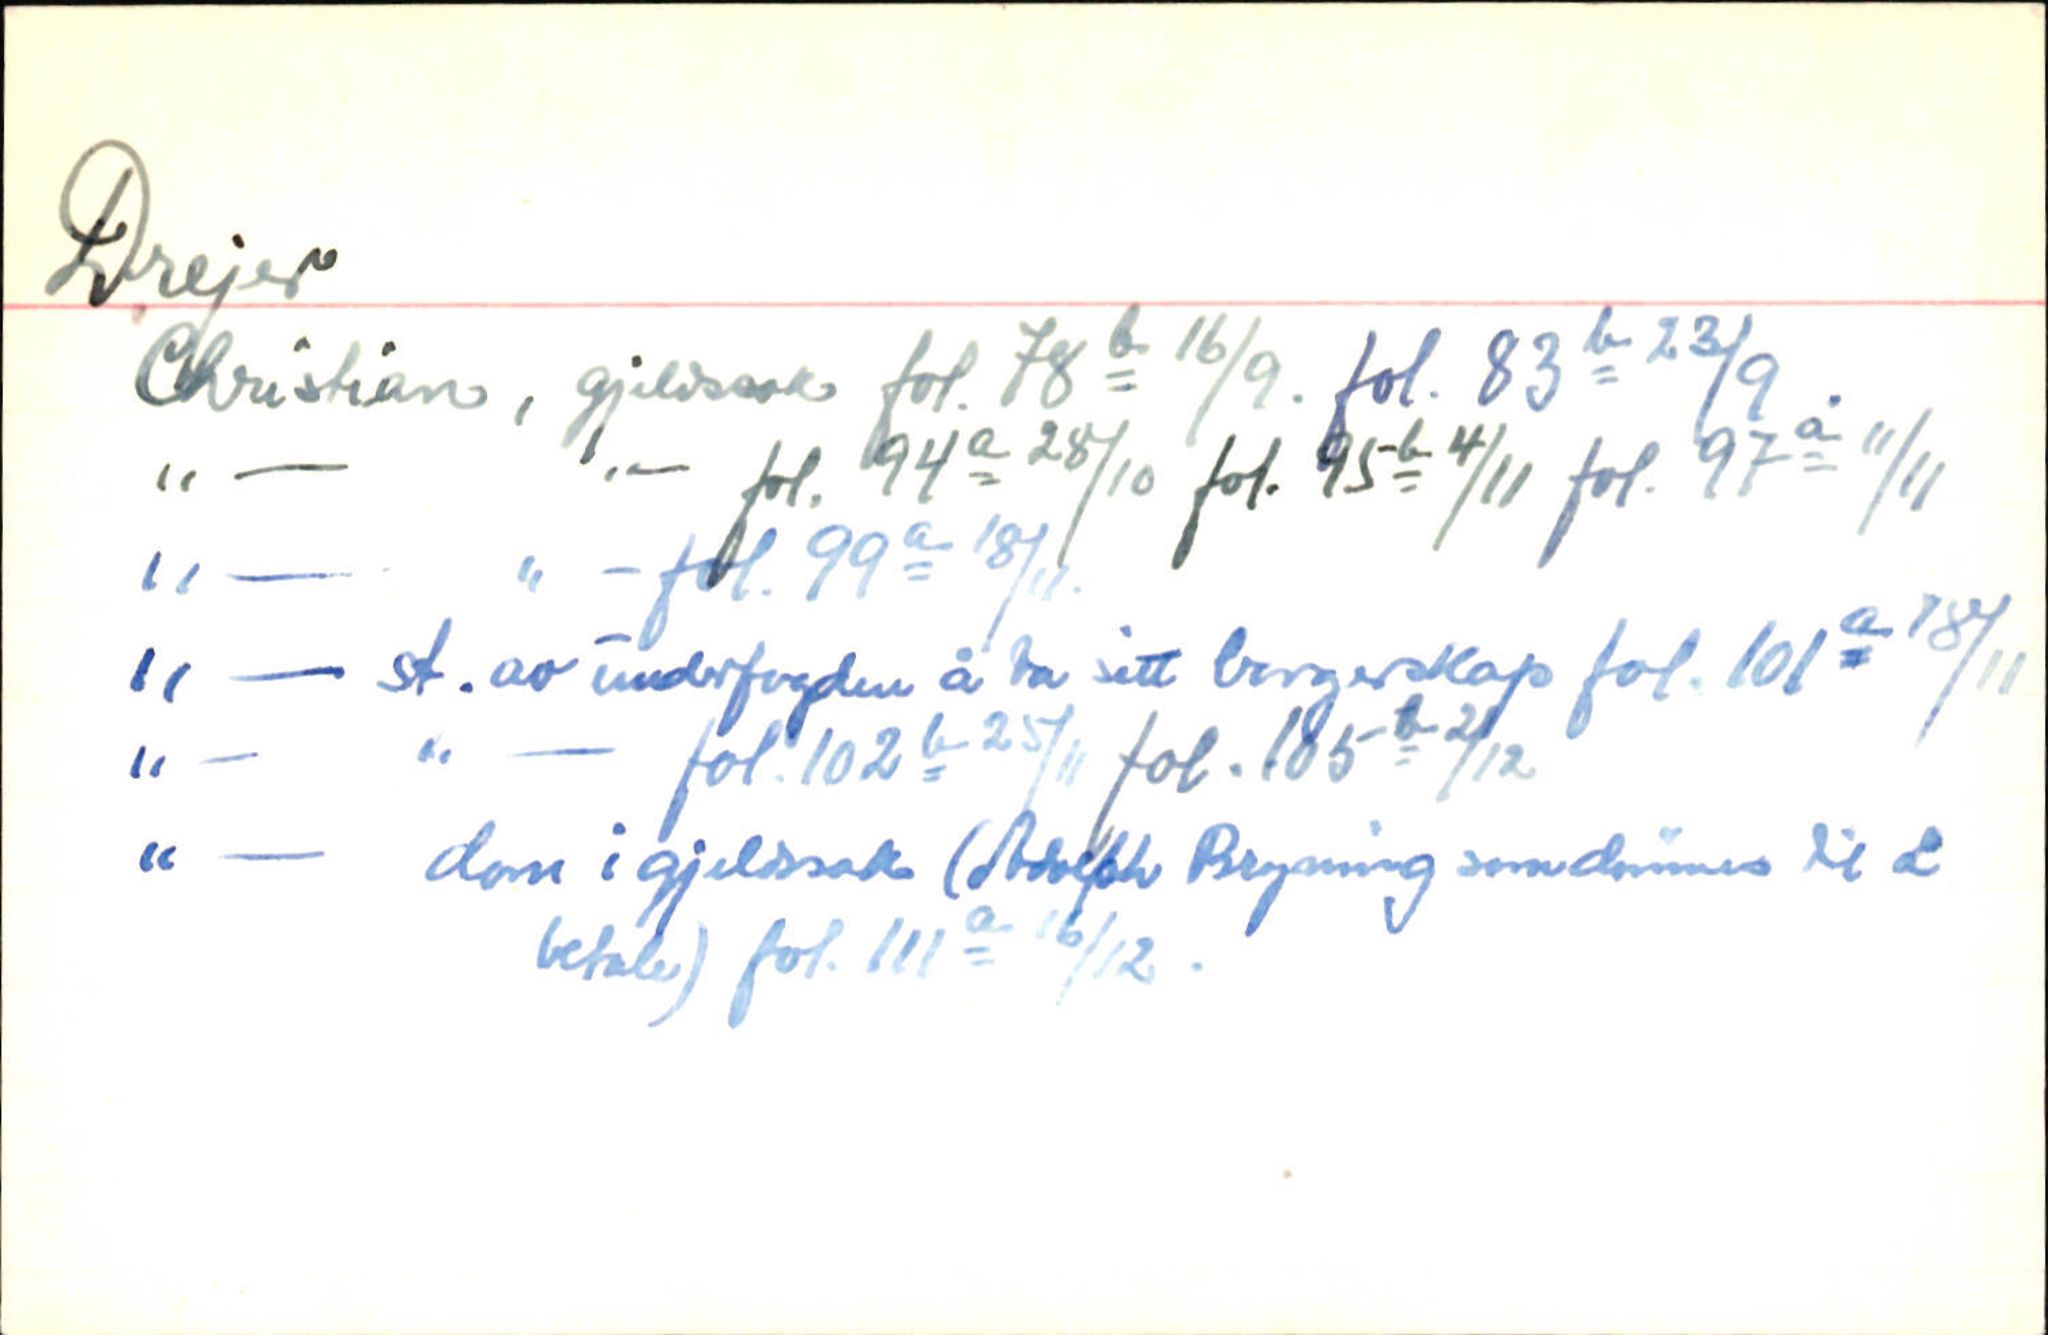 Drejer
Christian, gjeldssak fol. 78b 16/9. fol. 83b 23/9.
" — " — fol. 94a 28/10 fol. 95b 4/11 fol. 97a 11/11
" — " — fol. 99a 18/11.
" — st. av underfogden å ta sitt borgerskap fol. 101a 18/11
" — " — fol. 102b 25/11 fol. 105b 2/12
" — dom i gjeldssak (Adolph Bryning som dømmes til å
betale) fol. 111a 16/12.